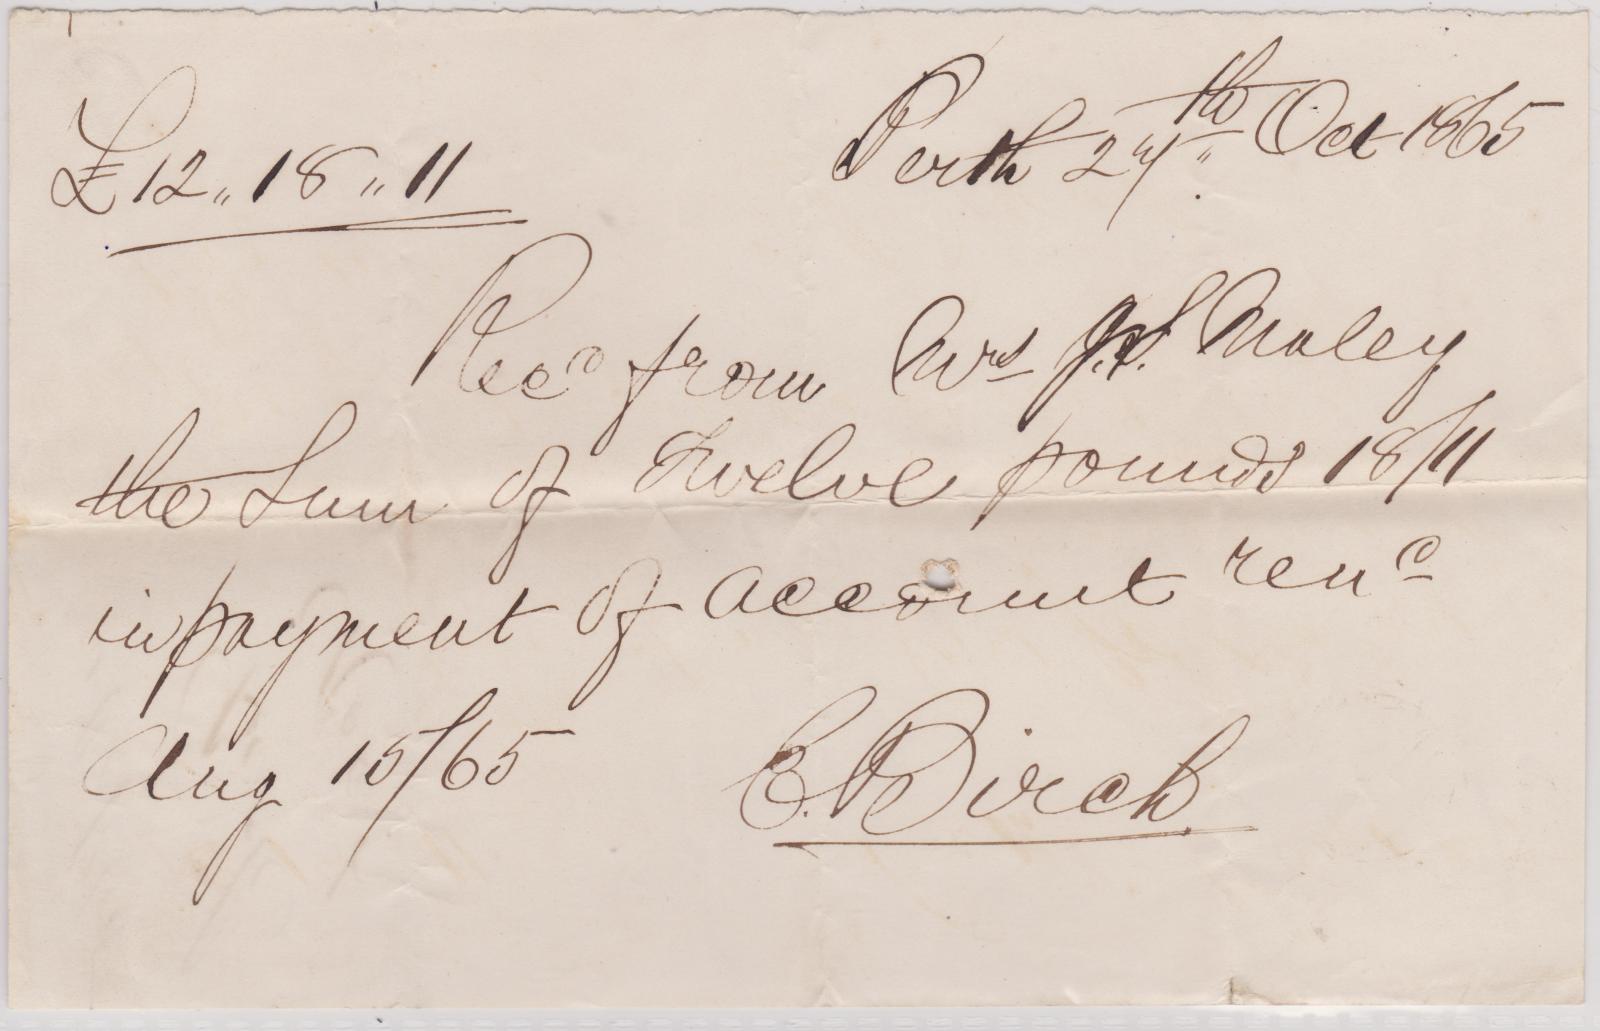 £12 „ 18 „ 11
Perth 24th Oct 1865
Recd from Mrs J.S. Maley
the Sum of Twelve pounds 18/11
in payment of account rend
Aug 15/65
E. Birch